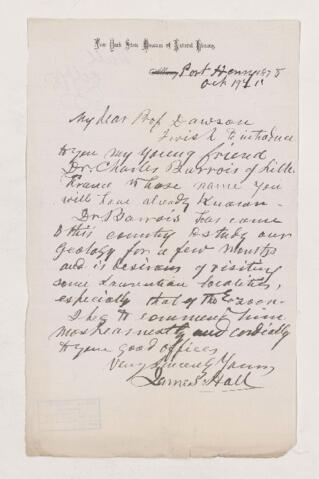 New York State Museum of Natural History,
Albany Port Henry 1878
Oct 19
My dear Prof Dawson
I wish to introduce
to you my young friend
Dr. Charles Barrois of Lille
France whose name you
will have already known -
Dr Barrois has come
to this country to study our
Geology for a few months
and is desirous of visiting
some Laurentian localities,
especially that of the Eozoon.
I beg to commend him
most earnestly and cordially
to your good offices
Very Sincerely Yours
James Hall